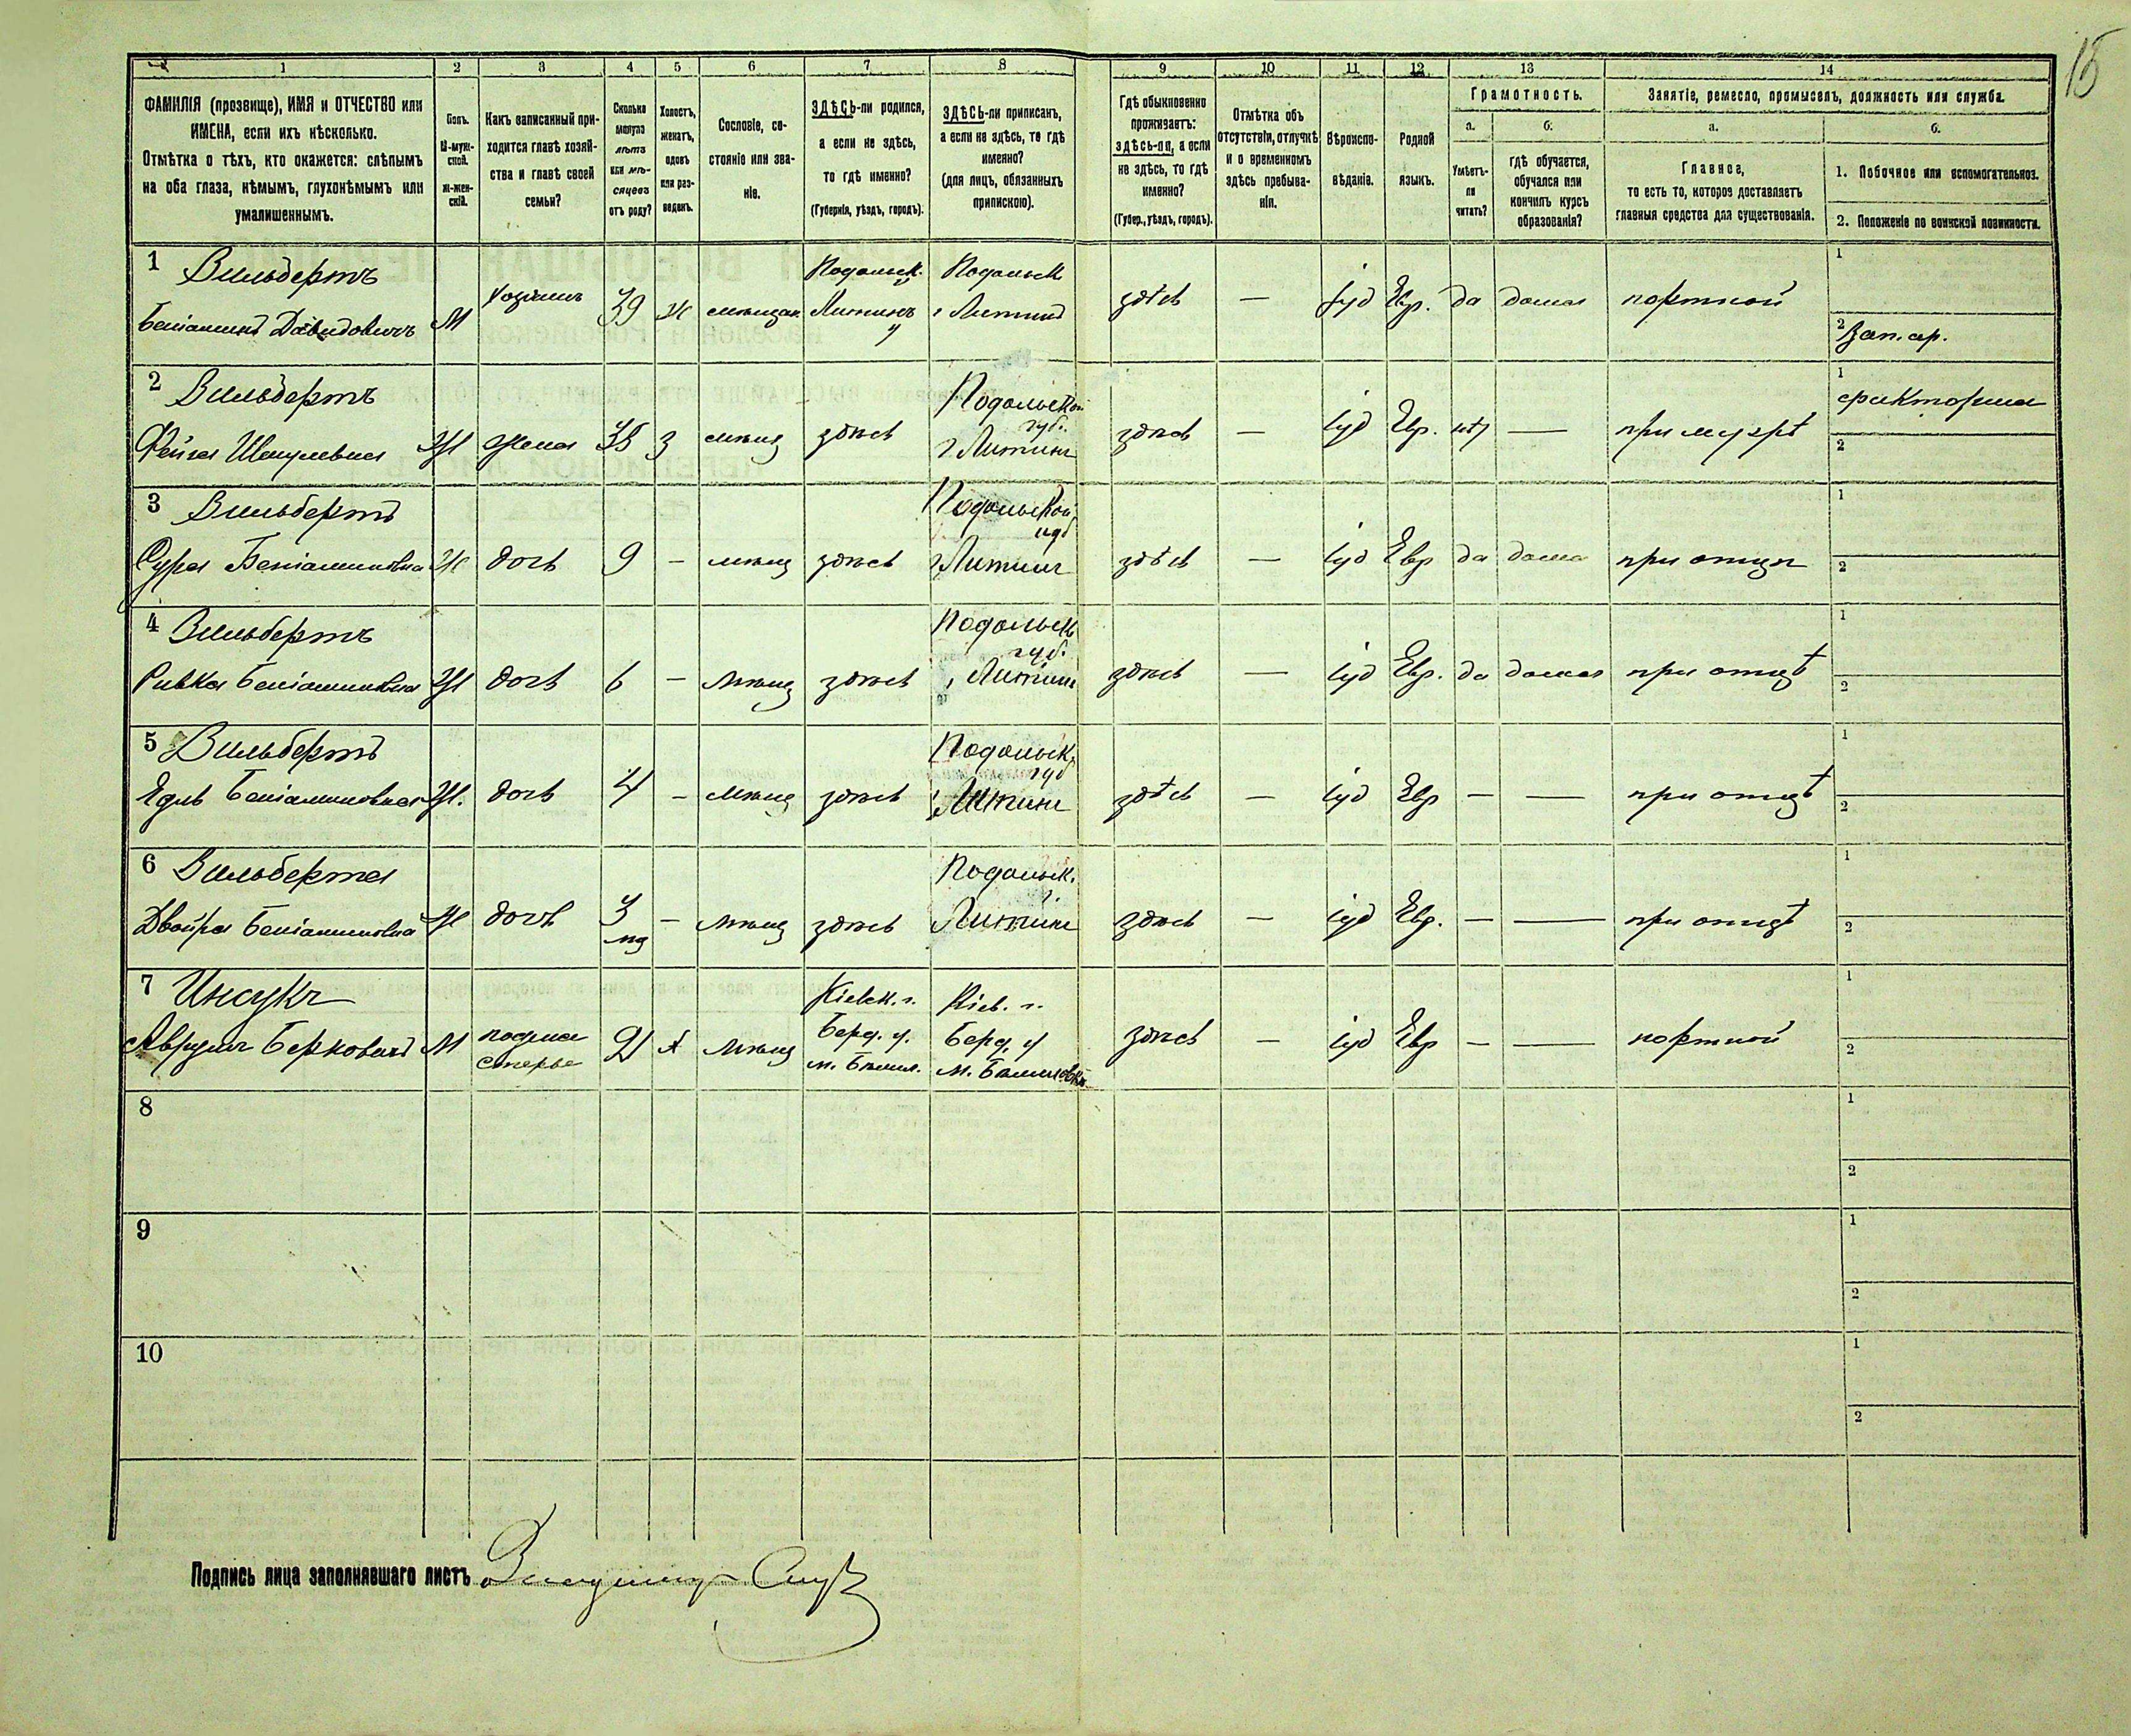 15
1 2 3 4 5 6 7 8 9 10 11 12 13 14
ФАМИЛІЯ (прозвище), ИМЯ и ОТЧЕСТВО или
ИМЕНА, если ихъ нѣсколько.
Отмѣтка о тѣхъ, кто окажется: слѣпымъ
на оба глаза, нѣмымъ, глухонѣмымъ или
умалишеннымъ.
Полъ.
М-муж-
ской.
ж-жен-
скій.
Какъ записанный при-
ходится главѣ хозяй-
ства и главѣ своей
семьи?
Сколько
минуло
лѣтъ
или мѣ-
сяцевъ
отъ роду?
Холостъ,
женатъ,
вдовъ
или раз-
веденъ.
Сословіе, со-
стояніе или зва-
ніе.
ЗДѢСЬ-ли родился,
а если не здѣсь,
то гдѣ именно?
(Губернія, уѣздъ, городъ).
ЗДѢСЬ-ли приписанъ,
а если не здѣсь, то гдѣ
именно?
(для лицъ, обязанныхъ
припискою).
Гдѣ обыкновенно
проживаетъ:
здѣсь-ли, а если
не здѣсь, то гдѣ
именно?
(Губер., уѣздъ, городъ).
Отмѣтка объ
отсутствіи, отлучкѣ
и о временномъ
здѣсь пребыва-
ніи.
Вѣроиспо-
вѣданіе.
Родной
языкъ.
Грамотность.
а.
Умѣетъ-
ли
читать?
б.
гдѣ обучается,
обучался или
кончилъ курсъ
образованія?
Занятіе, ремесло, промыселъ, должность или служба.
а.
Главное,
то есть то, которое доставляетъ
главныя средства для существованія.
б.
1. Побочное или вспомогательное.
2. Положеніе по воинской повинности.
1 Вильбертъ Подольск. Подольск 1
Беніаминъ Давидовичъ М хозяинъ 39 ж мѣщан Литинъ у г Литинъ здѣсь — іуд Евр. да дома портной
2 Зап. ар.
2 Вильбертъ Подольской губ. 1 факторша
Фейга Шмулевна Ж жена 38 з мѣщ здѣсь г Литинъ здѣсь — іуд Евр. нѣт — при мужѣ 2
3 Вильбертъ Подольской губ 1
Сура Беніаминовна Ж дочь 9 – мѣщ здѣсь г Литинъ здѣсь — іуд Евр да дома при отцѣ 2
4 Вильбертъ Подольск губ. 1
Ривка Беніаминовна Ж дочь 6 – мѣщ здѣсь г Литинъ здѣсь — іуд Евр. да дома при отцѣ 2
5 Вильбертъ Подольск. губ 1
Едль Беніаминовна Ж. дочь 4 – мѣщ здѣсь г Литинъ здѣсь — іуд Евр – — при отцѣ 2
6 Вильберта Подольск. 1
Двойра Беніаминовна Ж дочь 3 – мѣщ здѣсь Литинъ здѣсь — іуд Евр. – — при отцѣ 2
7 Кіевск. г. Кіев. г. 1
Аврумъ Берковичъ М подма стерье 21 х мѣщ Берд. у. Берд. у здѣсь – іуд Евр – — портной
м. Бѣлил. м. Бѣлиловка 2
8 1
2
9 1
2
10 1
2
Подпись лица заполнявшаго листъ